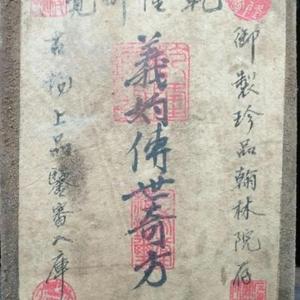 乾隆御覽
御製珍品翰林院存
義妁傳世奇方
古物上品鑒審入庫